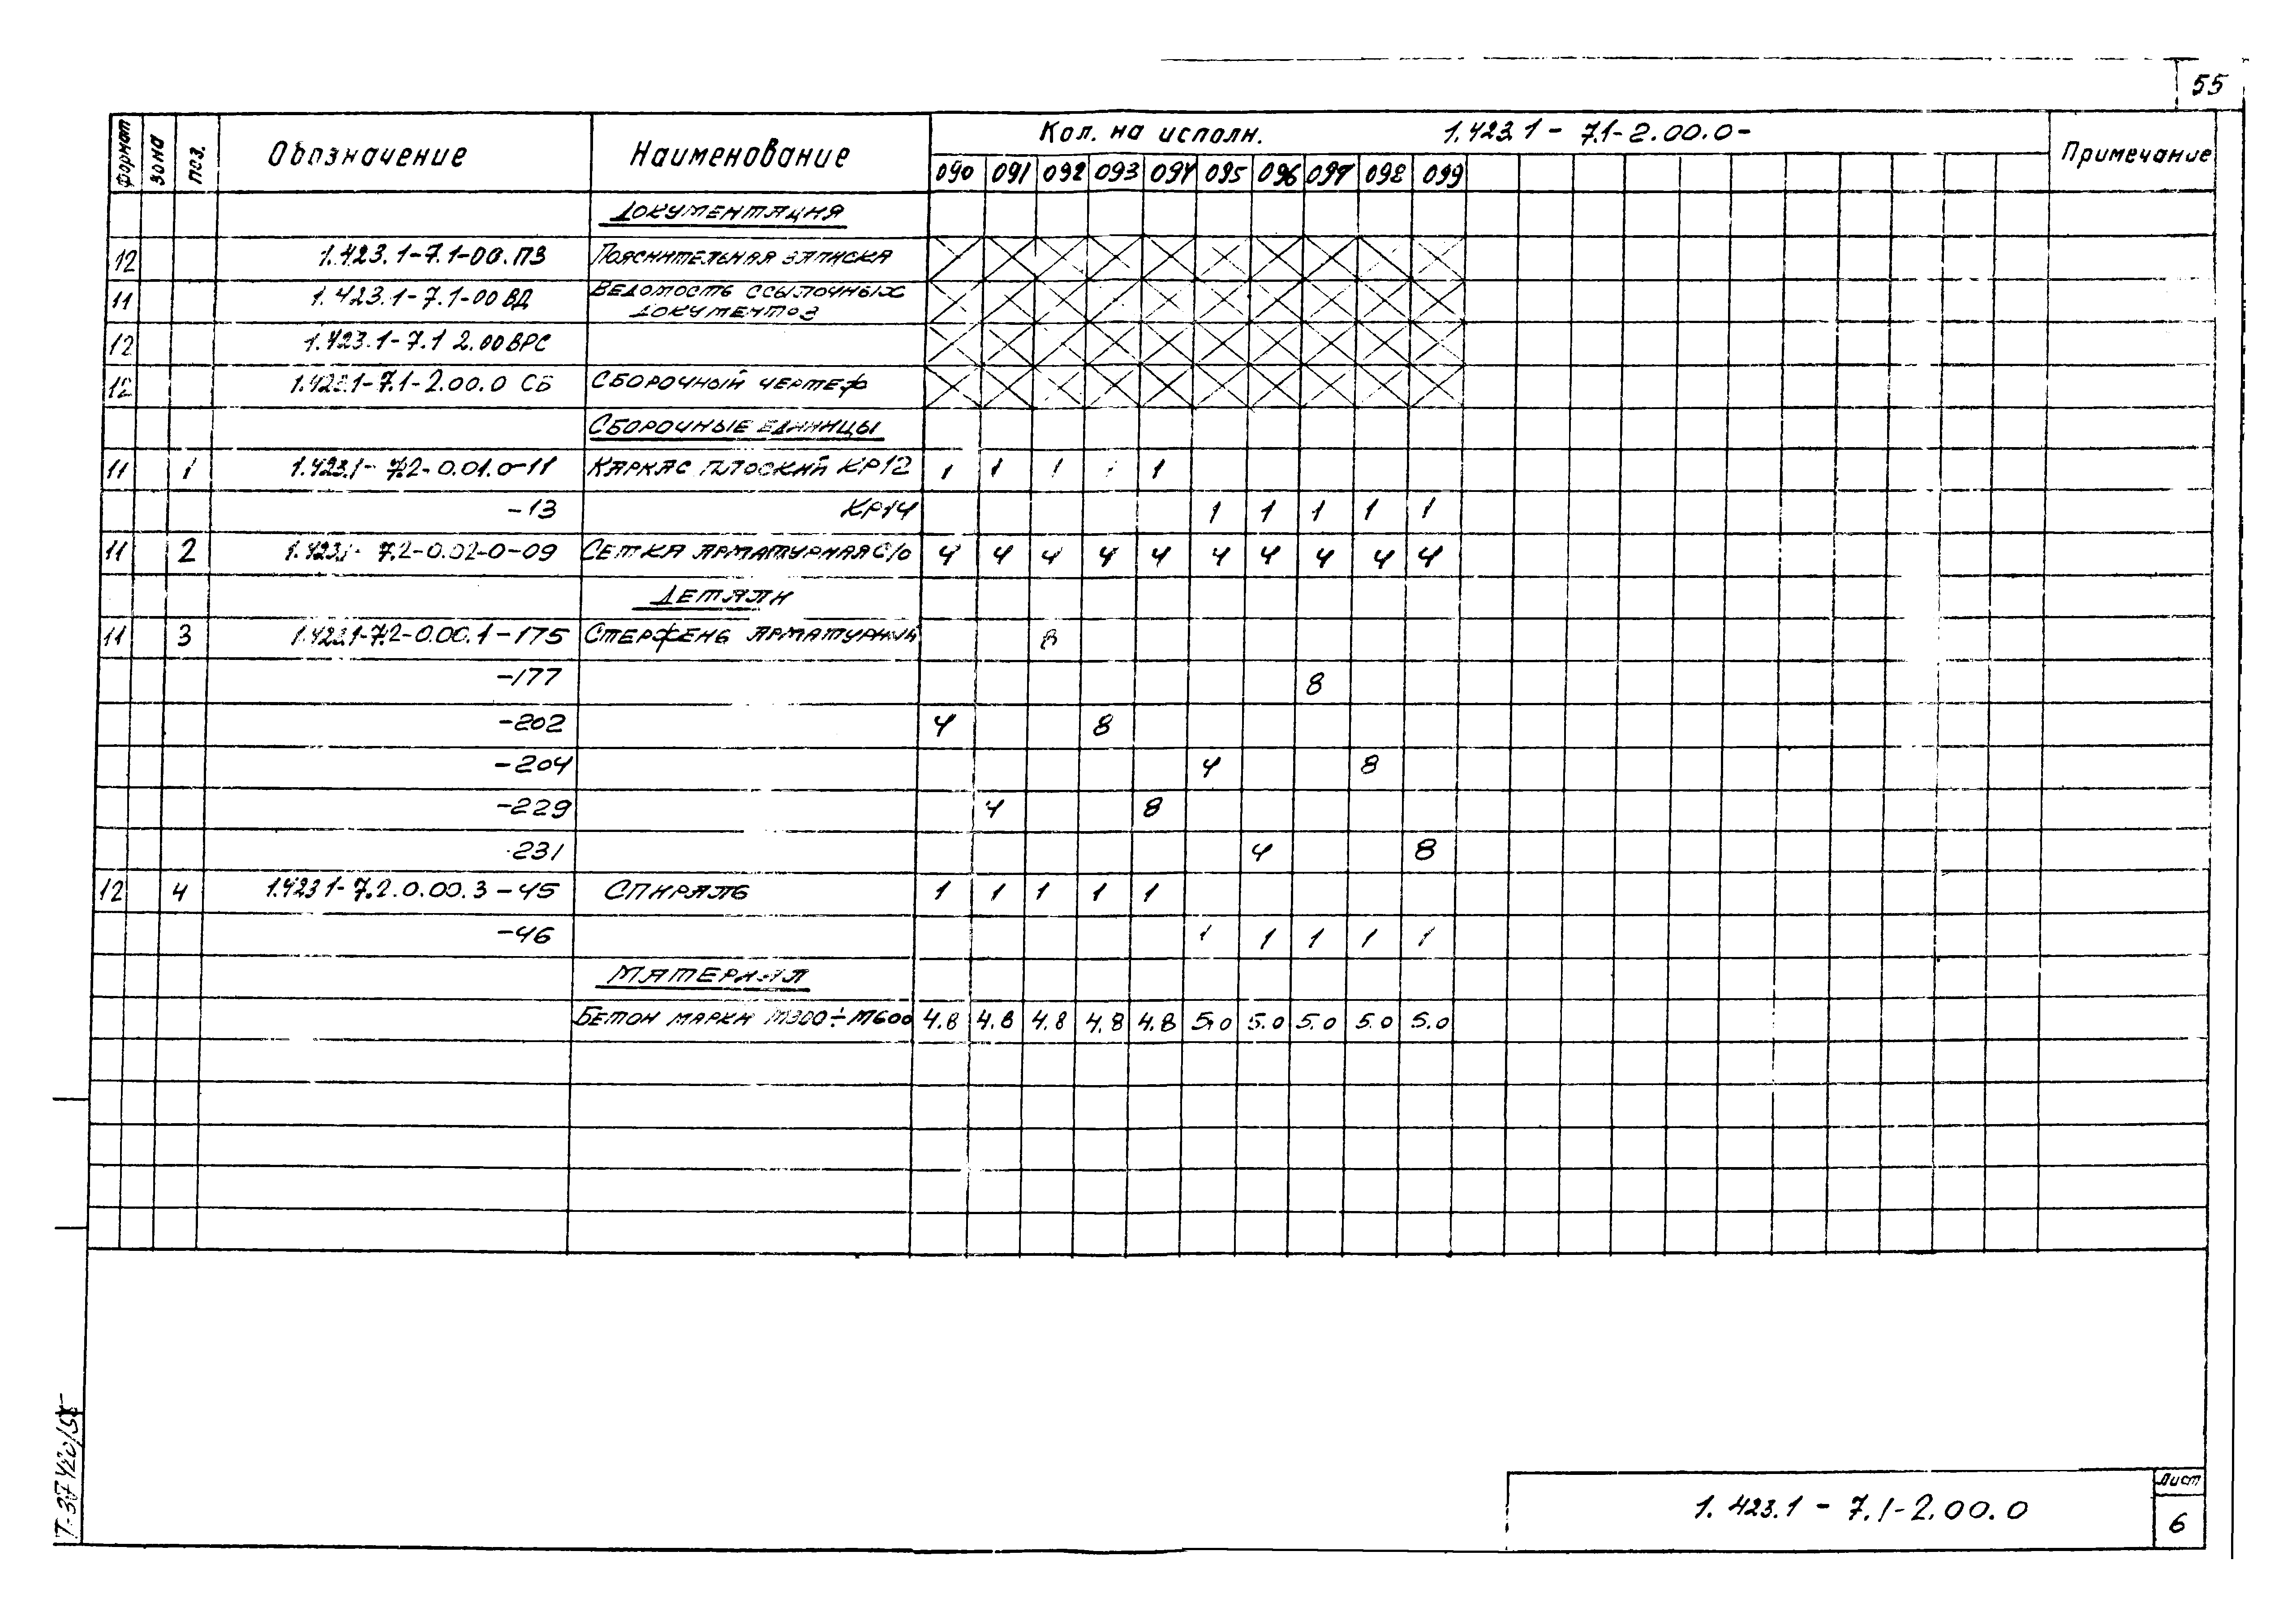 55
Формат Зона Поз. Обозначение Наименование Кол. на исполн. 1.423.1 - 7.1-2.00.0- Примечание
090 091 092 093 094 095 096 097 098 099
Документация
12 1.423.1-7.1-00.ПЗ Пояснительная записка
11 1.423.1-7.1-00 ВД Ведомость ссылочных
документов
12 1.423.1-7.1 2.00 ВРС
12 1.423.1-7.1-2.00.0 СБ Сборочный чертеж
Сборочные единицы
11 1 1.423.1- 7.2-0.01.0-11 Каркас плоский КР12 1 1 1 1 1
-13 КР14 1 1 1 1 1
11 2 1.423.1- 7.2-0.02-0-09 Сетка арматурная 4 4 4 4 4 4 4 4 4 4
Детали
11 3 1.423.1-7.2-0.00.1-175 Стержень арматурный 8
-177 8
-202 4 8
-204 4 8
-229 4 8
-231 4 8
12 4 1.423 1-7.2.0.00.3-45 Спираль 1 1 1 1 1
-46 1 1 1 1 1
Материал
Бетон марки М300÷М600 4.8 4.8 4.8 4.8 4.8 5.0 5.0 5.0 5.0 5.0
Т-37420/55
1.423.1 - 7.1-2.00.0
Лист
6